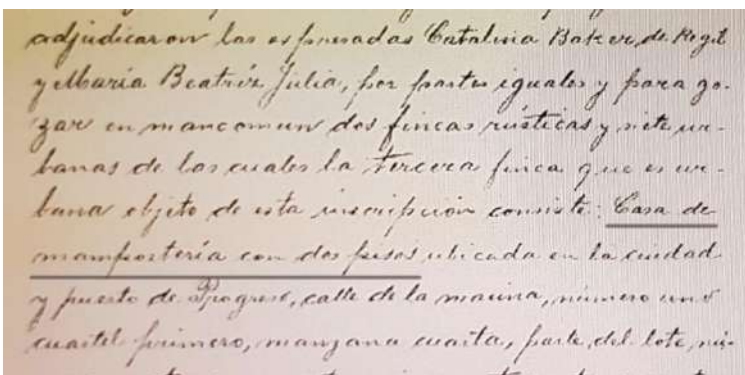 adjudicaron las expresadas Catalina Baker de Regil
y María Beatriz Julia, por partes iguales y para go-
zar en mancomun dos fincas rústicas y siete ur-
banas de las cuales la tercera finca que es ur-
bana objeto de esta inscripción consiste: Casa de
mampostería con dos pisos ubicada en la ciudad
y puerto de Progreso, calle de la marina, número uno
cuartel primero, manzana cuarta, parte del lote, nú-